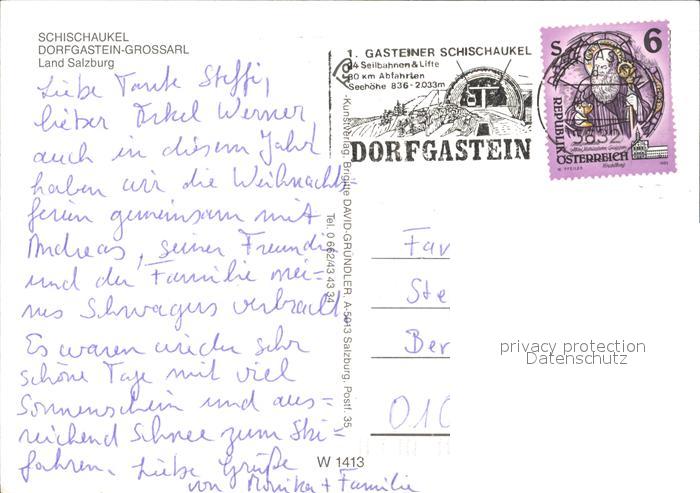 SCHISCHAUKEL
DORFGASTEIN-GROSSARL
Land Salzburg
Liebe Tante Steffi,
lieber Onkel Werner
auch in diesem Jahr
haben wir die Weihnachts-
ferien gemeinsam mit
Andreas, seiner Freundin
und der Familie mei=
nes Schwagers verbracht.
Es waren wieder sehr
schöne Tage mit viel
Sonnenschein und aus=
reichend Schnee zum Ski=
fahren. Liebe Grüße
von Monika + Familie
1. GASTEINER SCHISCHAUKEL
24 Seilbahnen & Lifte
80 km Abfahrten
Seehöhe 836-2033m
DORFGASTEIN
S 6
REPUBLIK
ÖSTERREICH
Kunstverlag Brigitte DAVID-GRÜNDLER, A-5013 Salzburg, Postf. 35
Tel. 0 662/43 43 34
W 1413
Fav
Ste
Ber
010
privacy protection
Datenschutz